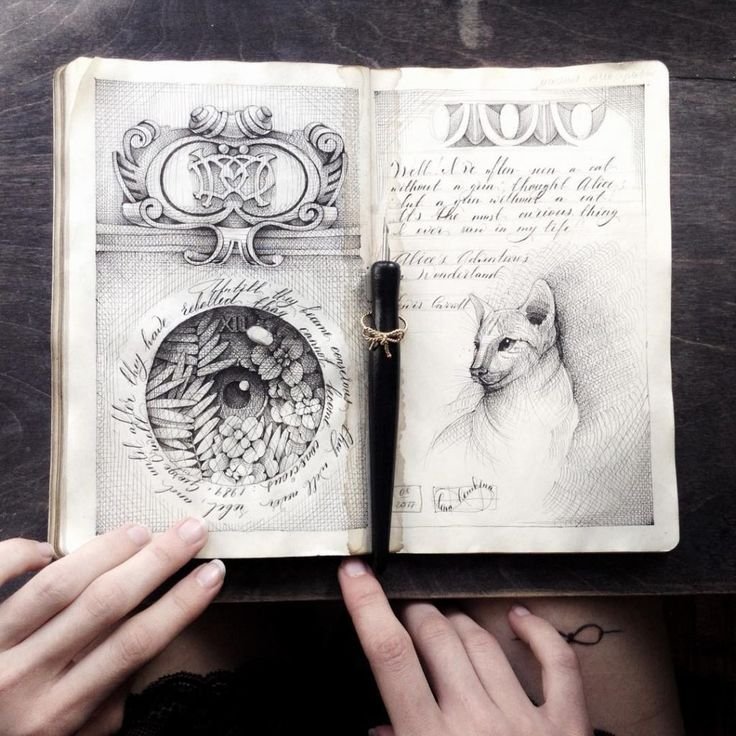 XII
Untill they become conscious they will never rebel and until after they have rebelled they cannot become conscious. 1984,
Well! I've often seen a cat
without a grin, thought Alice,
but a grin without a cat
It's the most curious thing
I ever saw in my life
Alice's Adventures
in Wonderland
Lewis Carroll
05
2017